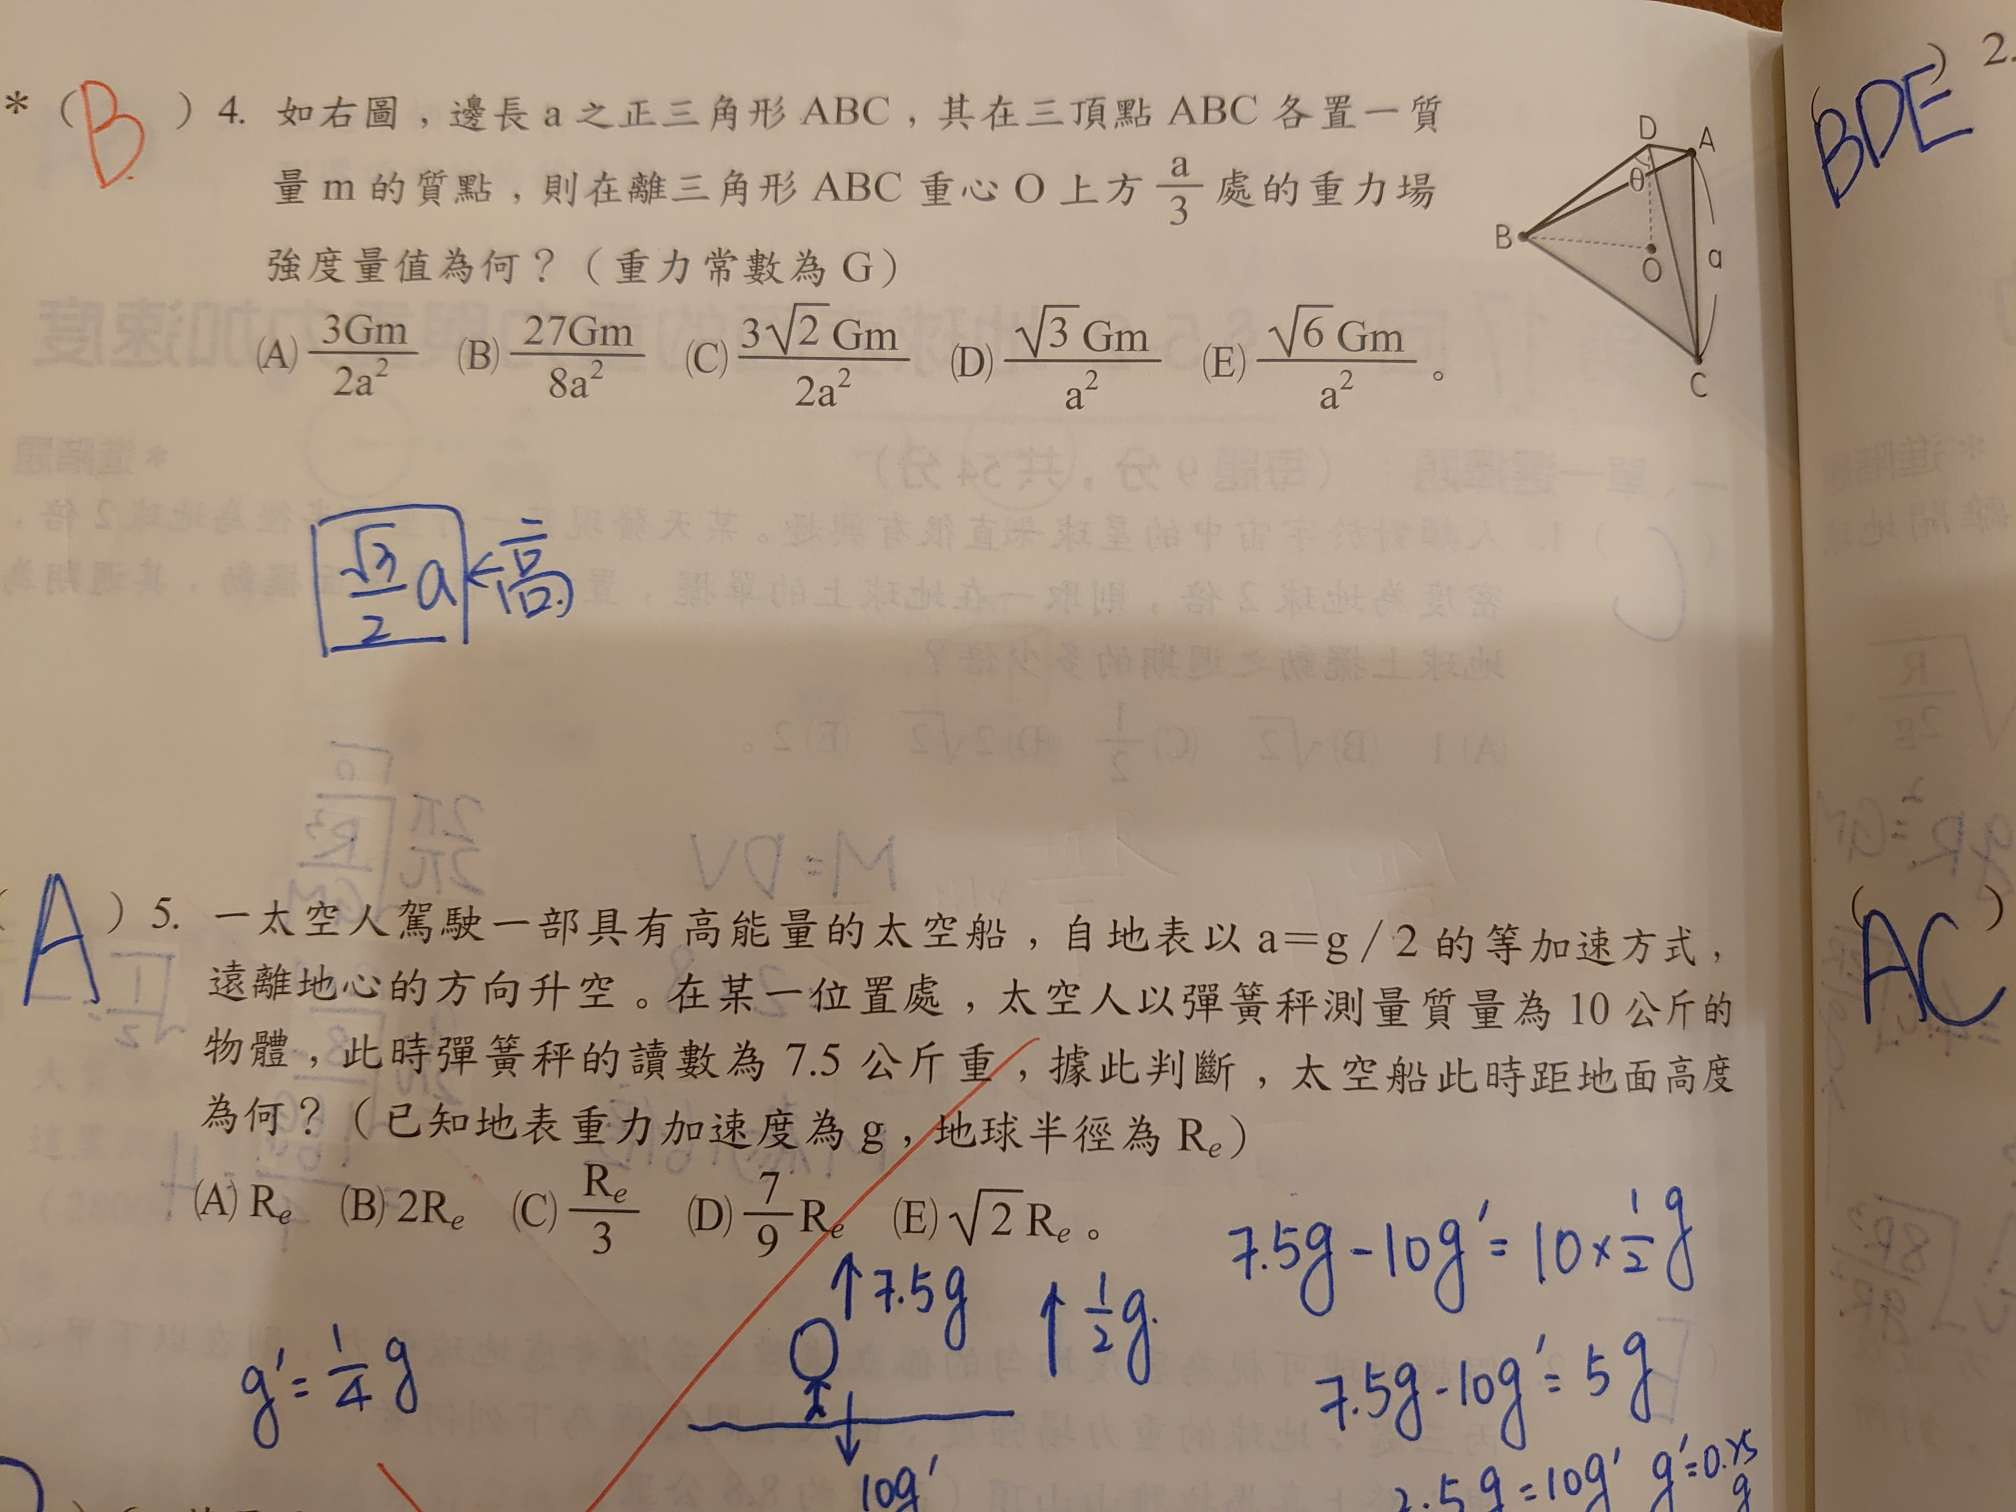 *（B）4. 如右圖，邊長 a 之正三角形 ABC，其在三頂點 ABC 各置一質
量 m 的質點，則在離三角形 ABC 重心 O 上方 a/3 處的重力場
強度量值為何？（重力常數為 G）
(A) 3Gm/2a² (B) 27Gm/8a² (C) 3√2 Gm/2a² (D) √3 Gm/a² (E) √6 Gm/a² 。
D
A
θ
B
O
a
C
√3/2 a ← 高
（A）5. 一太空人駕駛一部具有高能量的太空船，自地表以 a＝g／2 的等加速方式，
遠離地心的方向升空。在某一位置處，太空人以彈簧秤測量質量為 10 公斤的
物體，此時彈簧秤的讀數為 7.5 公斤重，據此判斷，太空船此時距地面高度
為何？（已知地表重力加速度為 g，地球半徑為 Rₑ）
(A) Rₑ (B) 2Rₑ (C) Rₑ/3 (D) 7/9 Rₑ (E) √2 Rₑ 。
7.5g - 10g' = 10 × 1/2 g
↑ 7.5g ↑ 1/2 g
g' = 1/4 g
7.5g - 10g' = 5g
10g'
2.5g = 10g' g' = 0.25g
（BDE）2.
（AC）